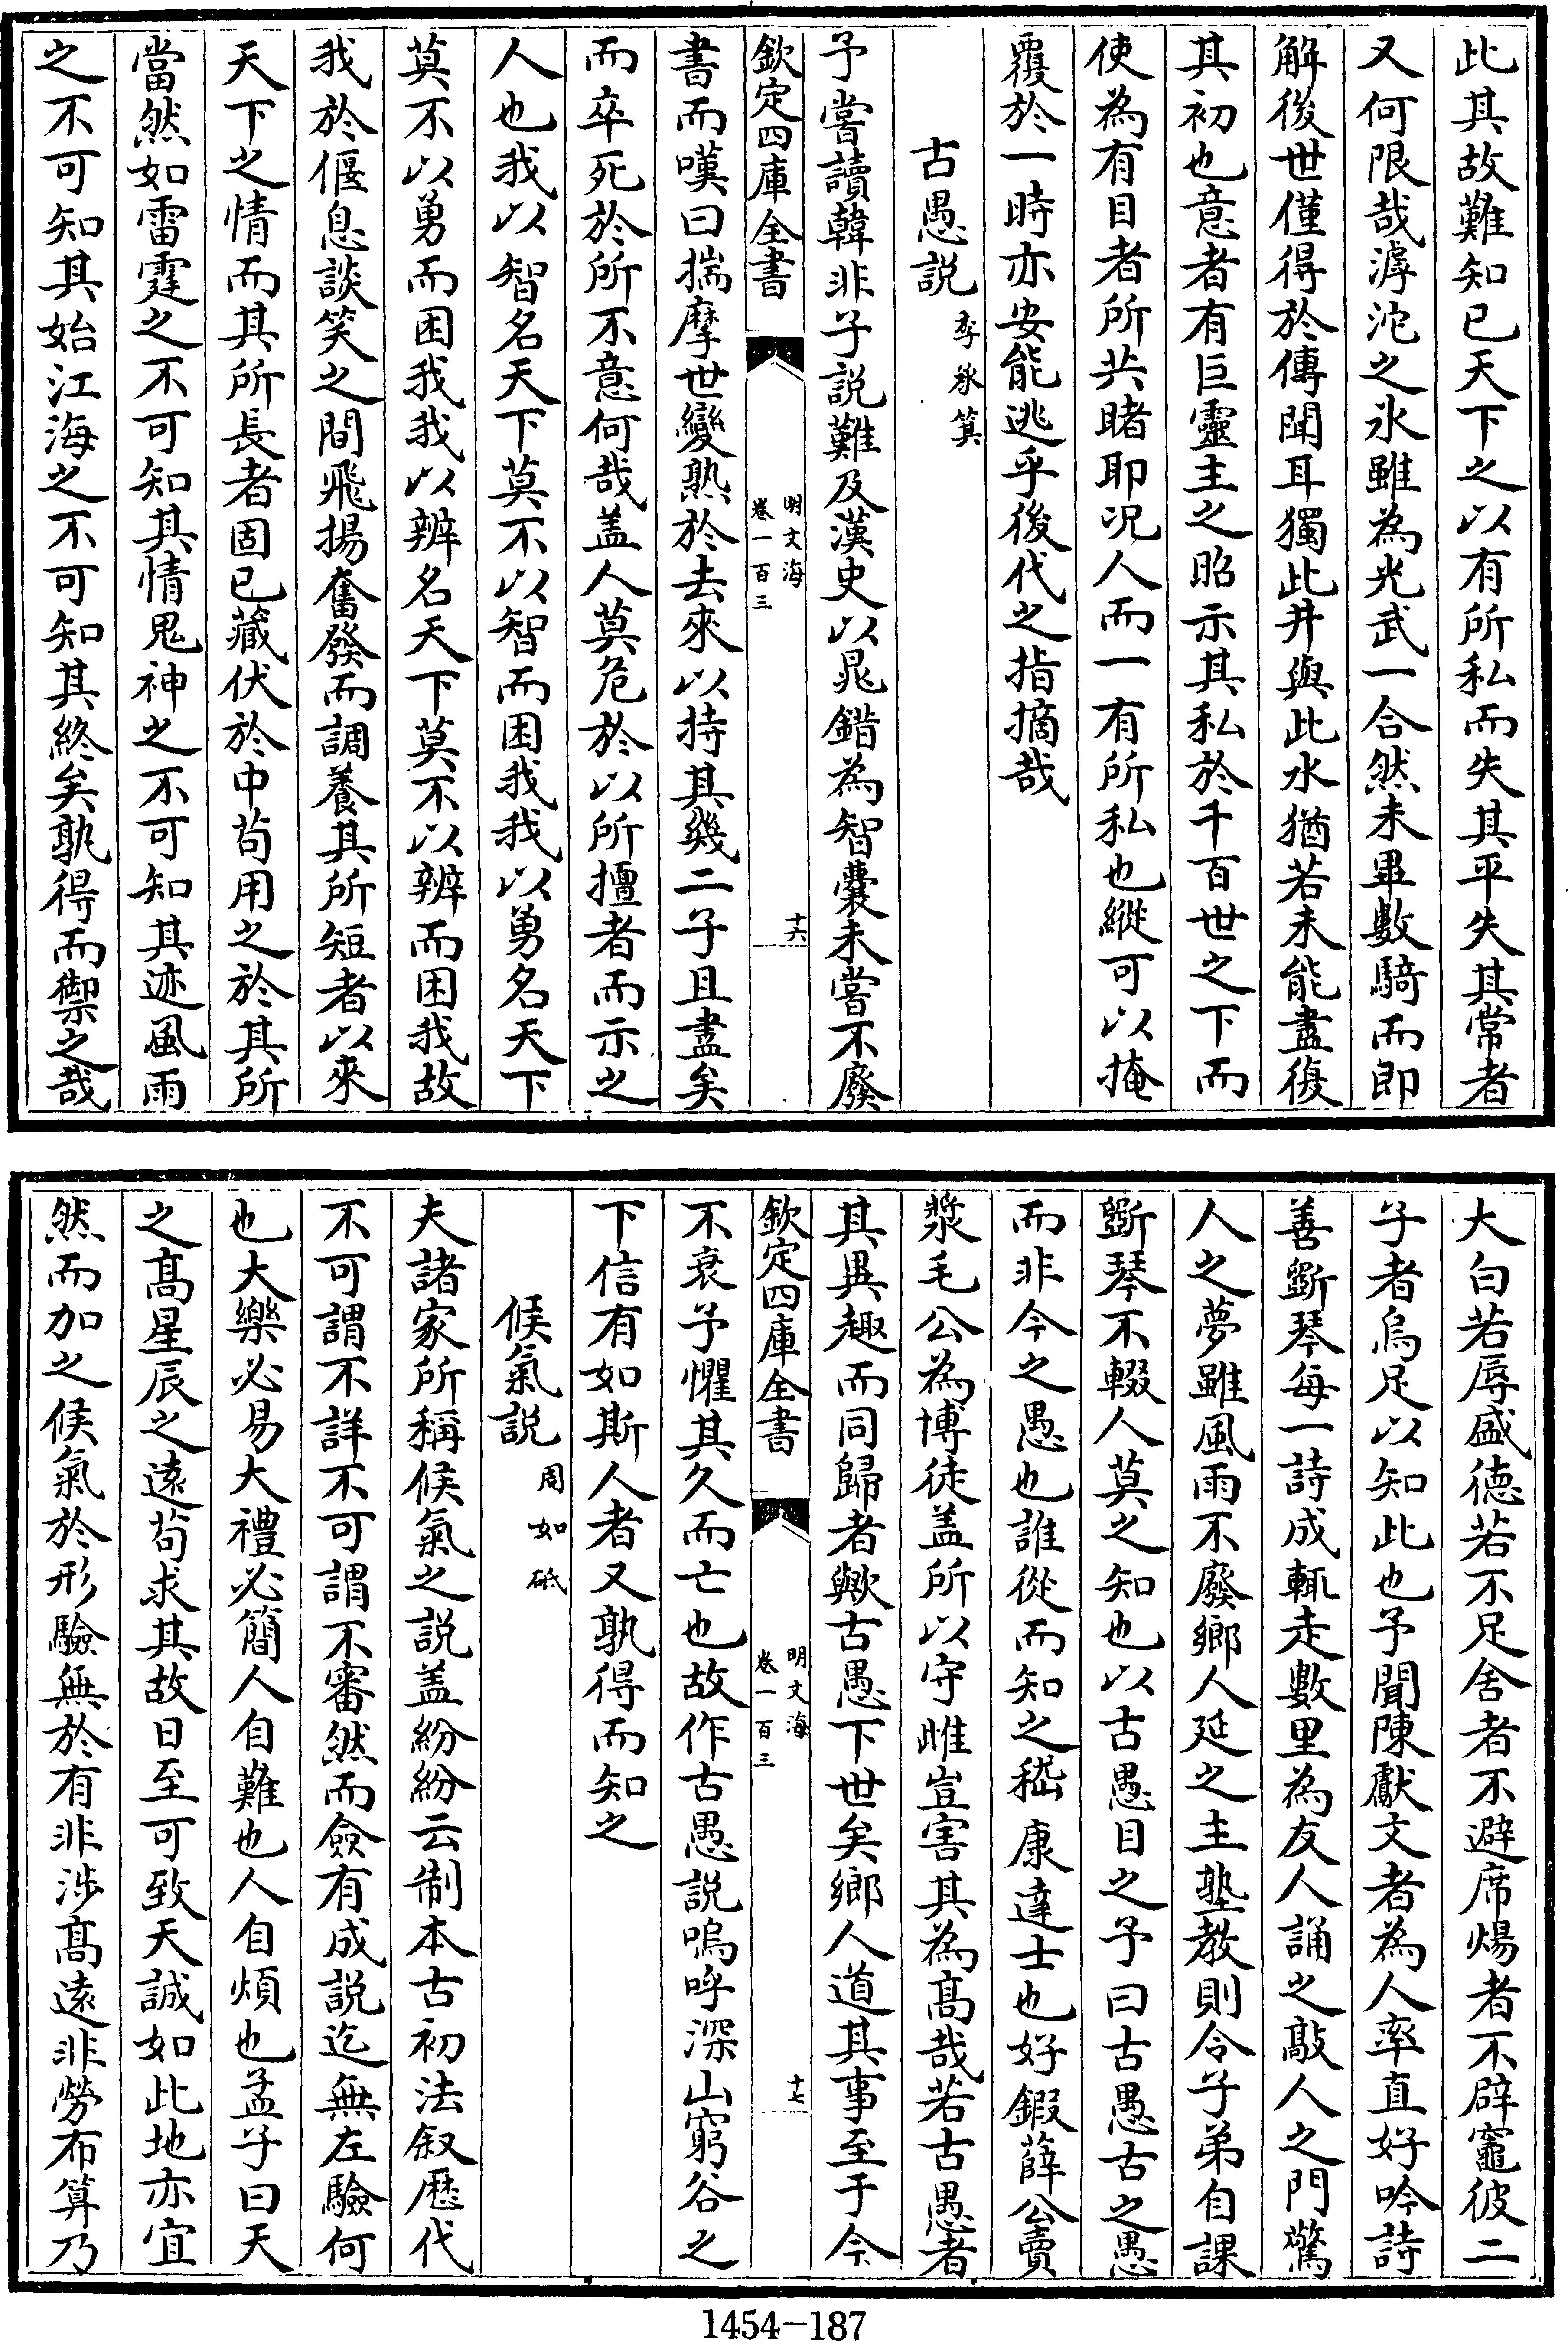 此其故難知已天下之以有所私而失其平失其常者
又何限哉滹沱之氷雖為光武一合然未畢數騎而即
解後世僅得於傳聞耳獨此井與此水猶若未能盡復
其初也意者有巨靈主之昭示其私於千百世之下而
使為有目者所共睹耶况人而一有所私也縱可以掩
覆於一時亦安能逃乎後代之指摘哉
古愚説 李承箕
予嘗讀韓非子説難及漢史以晁錯為智囊未嘗不廢
欽定四庫全書 明文海 卷一百三 十六
書而嘆曰揣摩世變熟於去來以持其幾二子且盡矣
而卒死於所不意何哉盖人莫危於以所擅者而示之
人也我以智名天下莫不以智而困我我以勇名天下
莫不以勇而困我我以辨名天下莫不以辨而困我故
我於偃息談笑之間飛揚奮發而調養其所短者以來
天下之情而其所長者固已藏伏於中苟用之於其所
當然如雷霆之不可知其情鬼神之不可知其迹風雨
之不可知其始江海之不可知其終矣孰得而禦之哉
大白若辱盛德若不足舍者不避席煬者不辟竈彼二
子者烏足以知此也予聞陳獻文者為人率直好吟詩
善斵琴每一詩成輒走數里為友人誦之敲人之門驚
人之夢雖風雨不廢鄉人延之主塾教則令子弟自課
斵琴不輟人莫之知也以古愚目之予曰古愚古之愚
而非今之愚也誰從而知之嵇康達士也好鍜薛公賣
漿毛公為博徒盖所以守雌豈害其為髙哉若古愚者
其異趣而同歸者歟古愚下世矣鄉人道其事至于今
欽定四庫全書 明文海 卷一百三 十七
不衰予懼其久而亡也故作古愚説嗚呼深山窮谷之
下信有如斯人者又孰得而知之
候氣説 周如砥
夫諸家所稱候氣之説盖紛紛云制本古初法叙厯代
不可謂不詳不可謂不審然而僉有成説迄無左驗何
也大樂必易大禮必簡人自難也人自煩也孟子曰天
之髙星辰之逺苟求其故日至可致天誠如此地亦宜
然而加之候氣於形驗無於有非涉髙逺非勞布算乃
1454-187